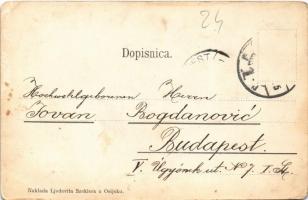 24
Dopisnica.
Hochwohlgeboren Herrn
Jovan Bogdanović
Budapest.
V. Ügynök ut. No 7. I. St.
Naklada Ljudevita Szeklera u Osijeku.